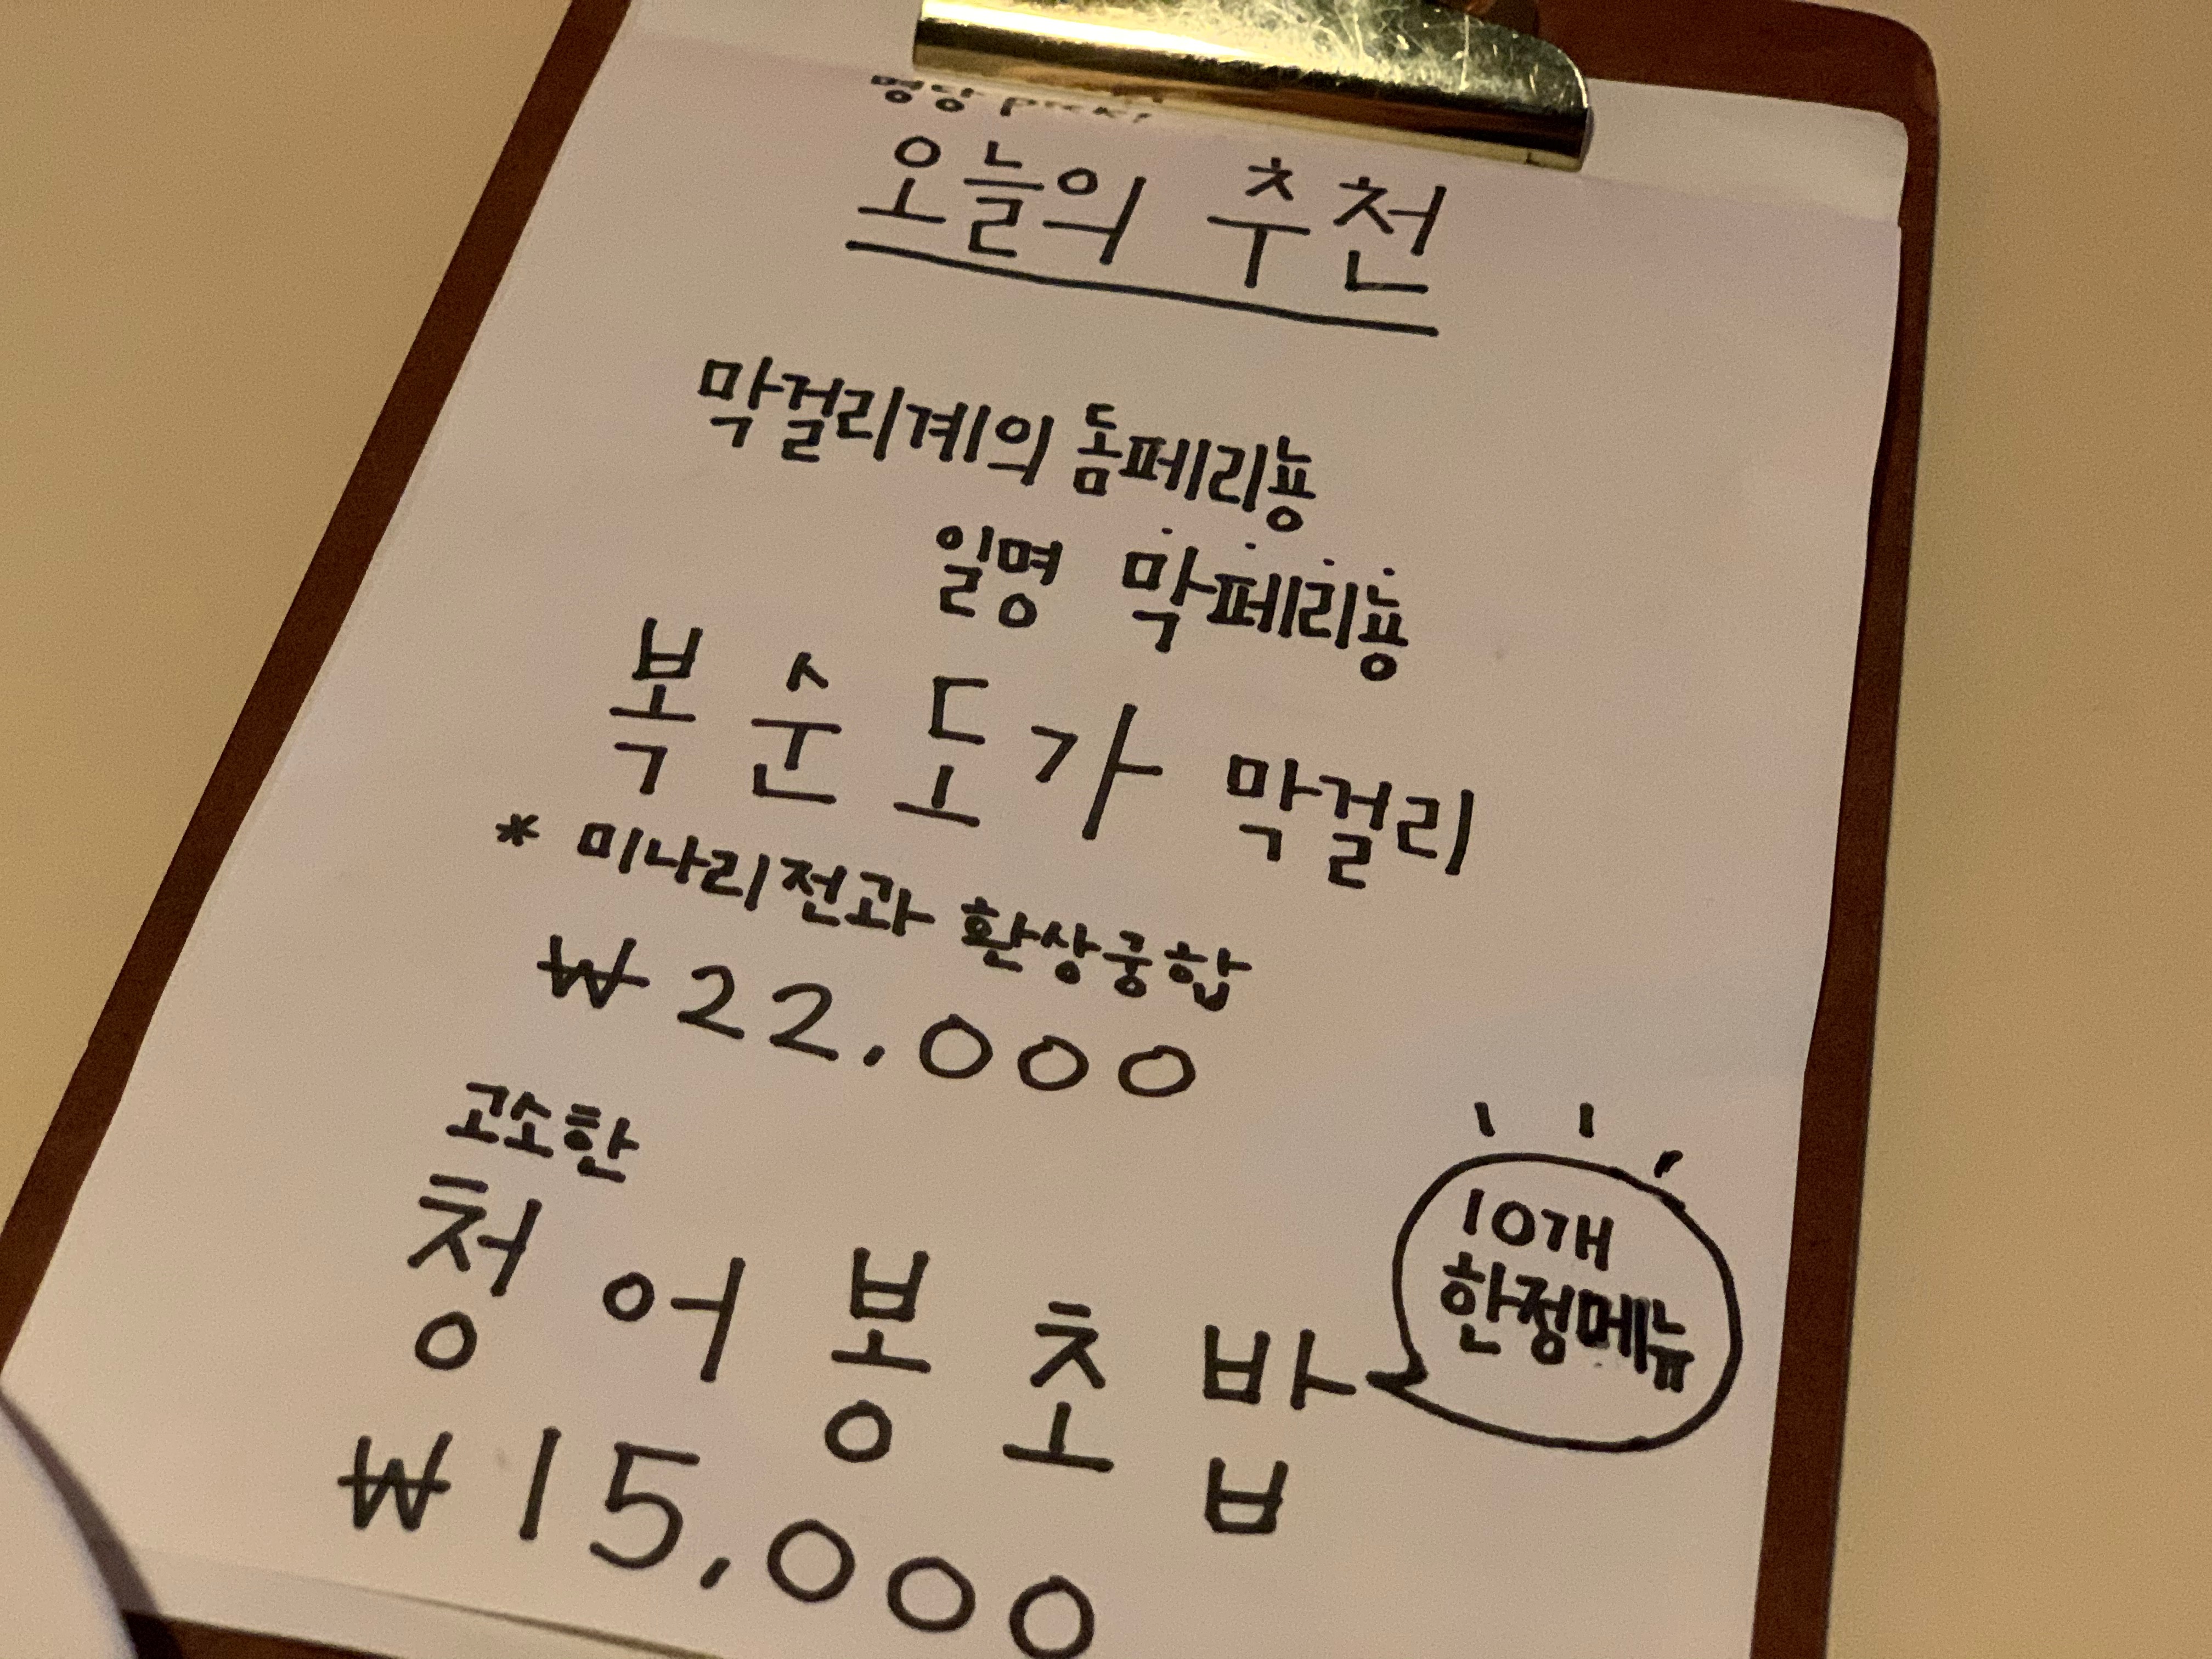 오늘의 추천
막걸리계의 돔페리뇽
일명 막페리뇽
복순도가 막걸리
* 미나리전과 환상궁합
₩22,000
고소한
청어봉초밥
10개
한정메뉴
₩15,000